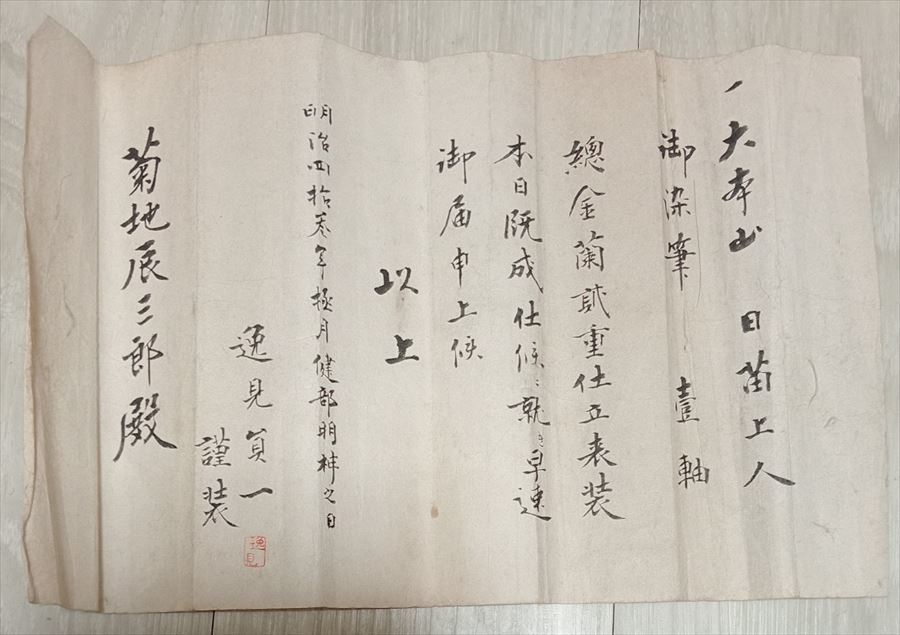 一大本山 日菑上人
御染筆 壹軸
總金蘭貳重仕立表装
本日既成仕候ニ就き早速
御届申上候
以上
明治四拾叁年極月健部明神之日
逸見貟一
謹装
逸見
菊地辰三郎殿